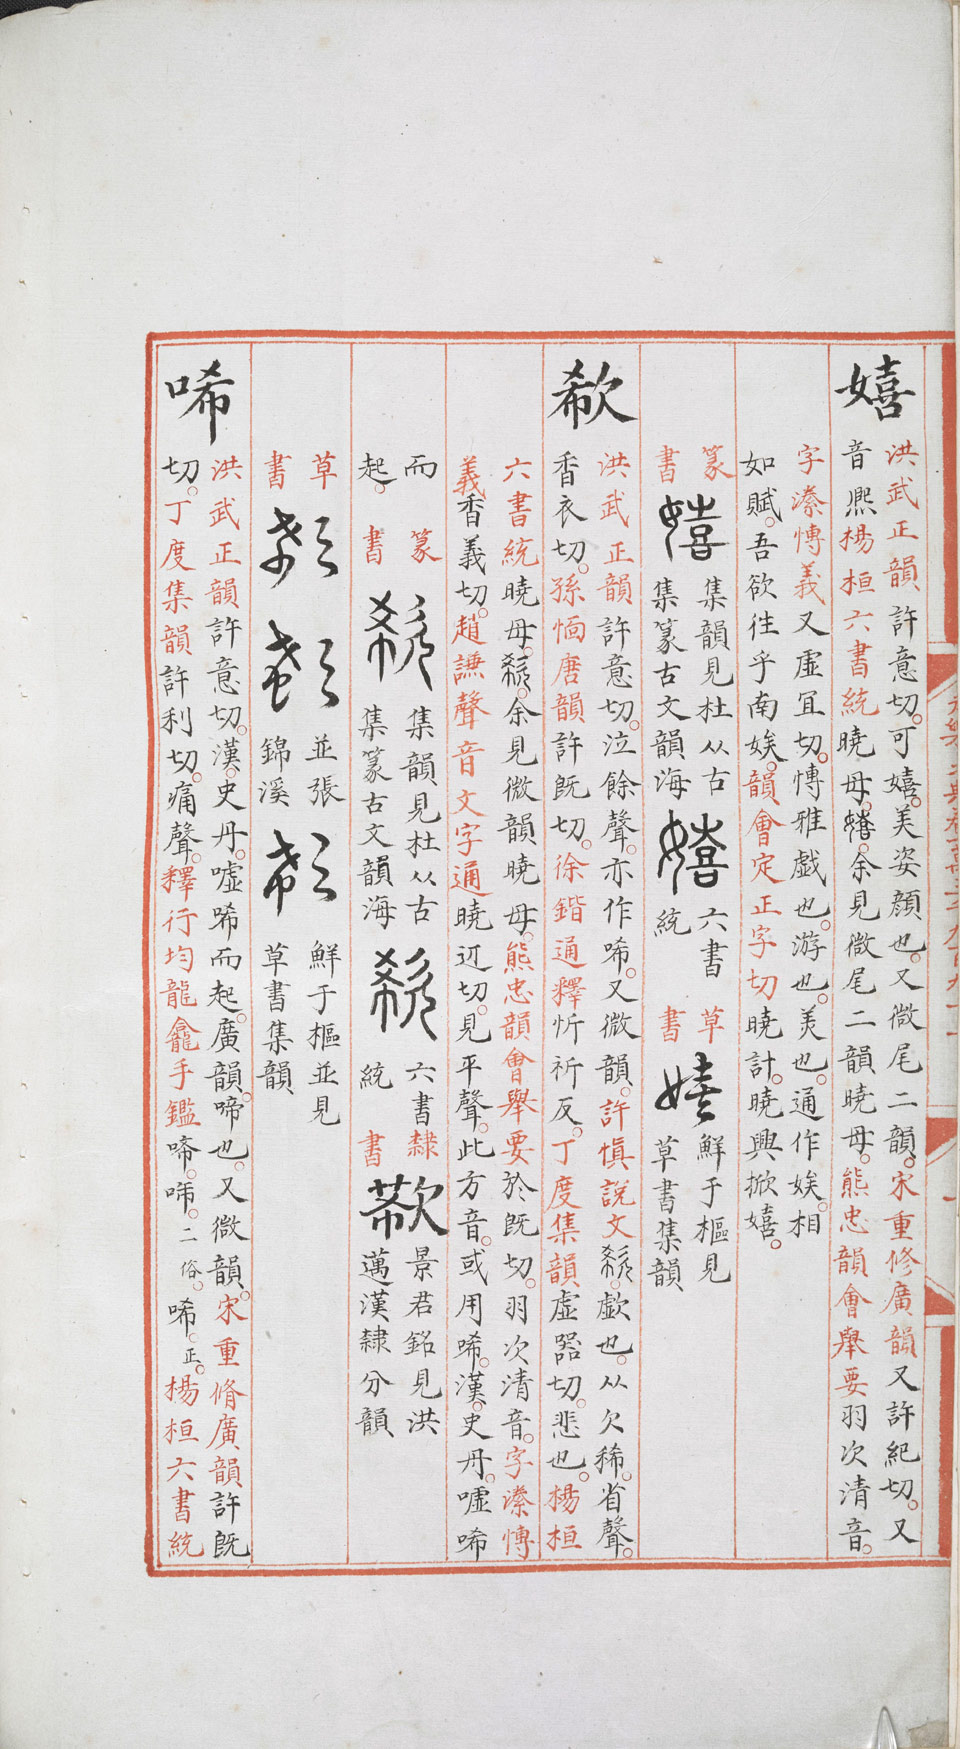 嬉
洪武正韻許意切。可嬉。美姿顏也。又微尾二韻。宋重修廣韻又許紀切。又
音熈楊桓六書統曉母。余見微尾二韻曉母。熊忠韻會舉要羽次清音。
字潫愽義又虛宜切。愽雅戲也。游也。美也。通作娭。相
如賦。吾欲徃乎南娭。韻會定正字切曉計。曉興掀嬉。
篆書 嬉 集韻見杜从古集篆古文韻海 嬉 六書統 草書 嬉 鮮于樞見草書集韻
欷
洪武正韻許意切。泣餘聲。亦作唏。又微韻。許愼說文欷。歔也。从欠稀。省聲。
香衣切。孫愐唐韻許旣切。徐鍇通釋忻祈反。丁度集韻虛器切。悲也。楊桓
六書統曉母。欷。余見微韻曉母。熊忠韻會舉要於旣切。羽次清音。字潫愽
義香義切。趙謙聲音文字通曉迓切。見平聲。此方音。或用唏。漢。史丹。噓唏
而起。 篆書 欷 集韻見杜从古集篆古文韻海 欷 六書統 隸書 景君銘見洪邁漢隸分韻
草書 並張錦溪 鮮于樞並見草書集韻
唏
洪武正韻許意切。漢。史丹。噓唏而起。廣韻。啼也。又微韻。宋重脩廣韻許旣
切。丁度集韻許利切。痛聲。釋行均龍龕手鑑啼。二俗。唏。正。楊桓六書統